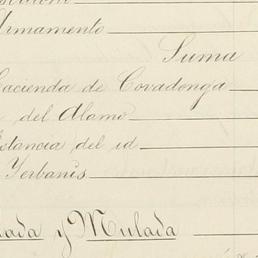 Armamento
Suma
Hacienda de Covadonga
del Alamo
Estancia del id
Yerbanis
y Mulada